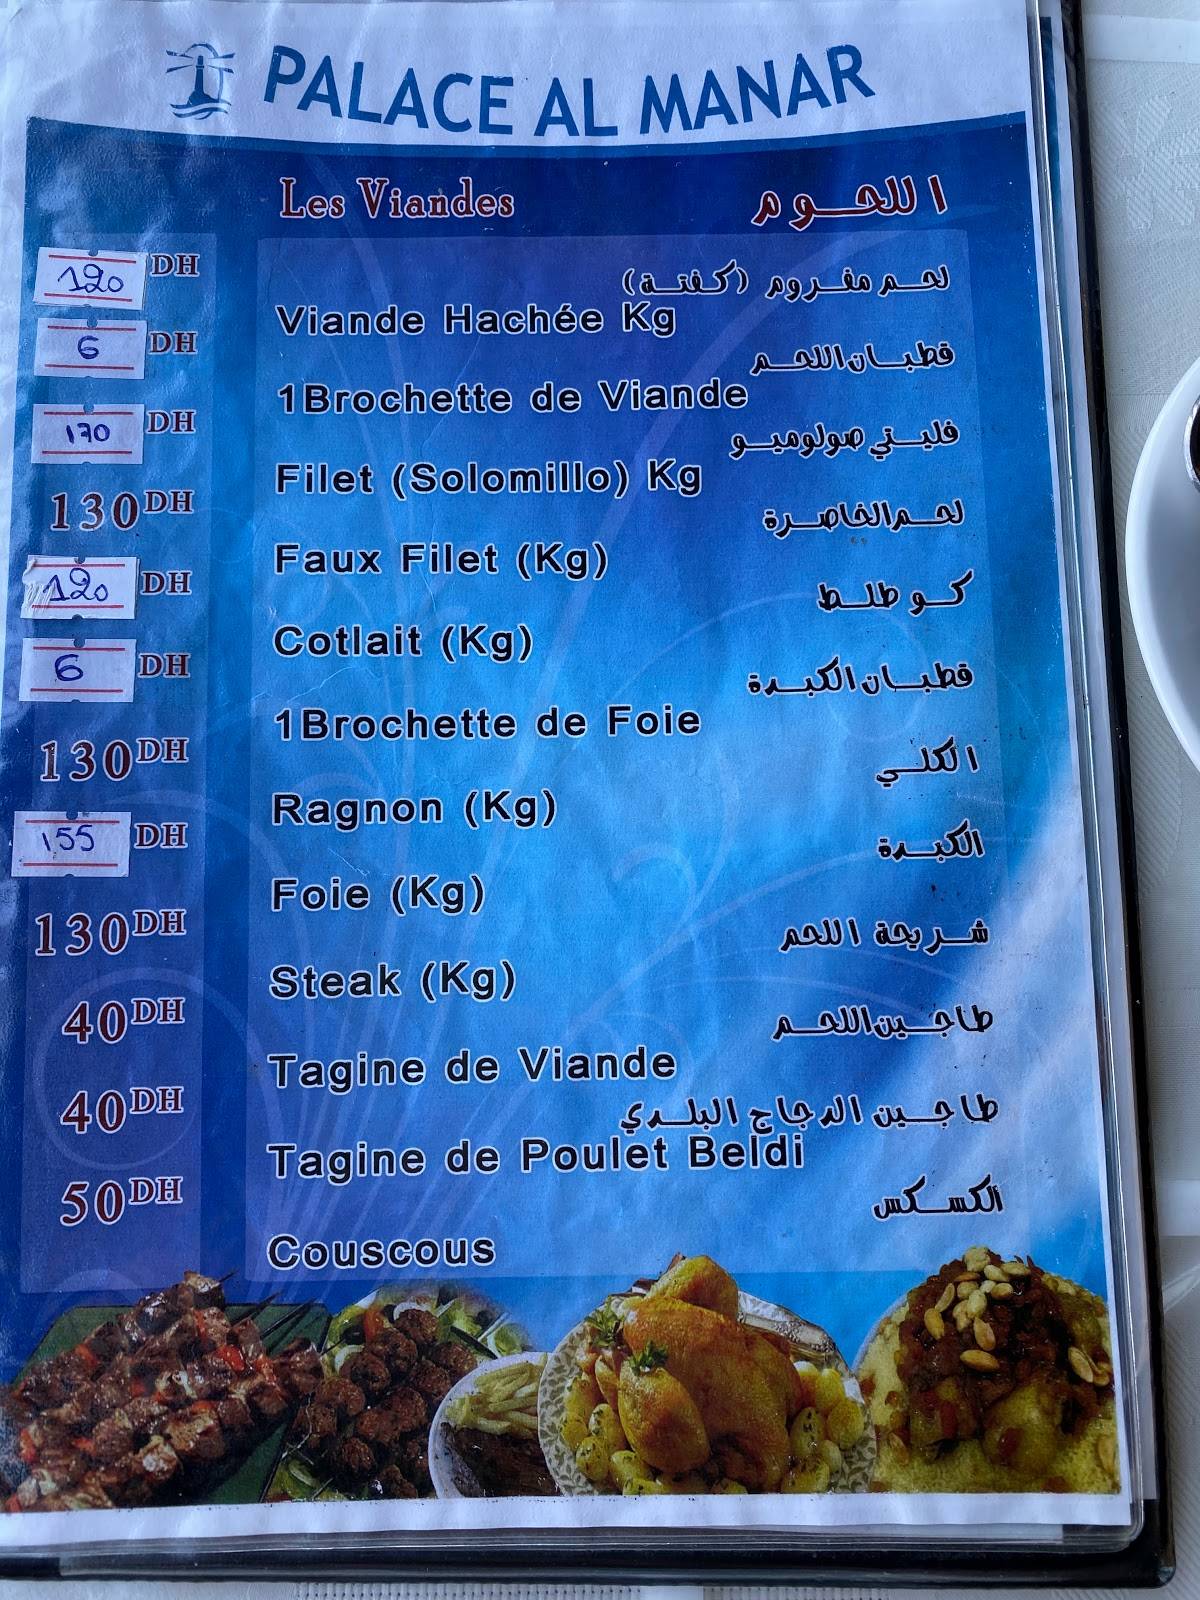 PALACE AL MANAR
Les Viandes
اللحوم
120 DH
لحم مفروم (كفتة)
Viande Hachée Kg
6 DH
قطبان اللحم
1Brochette de Viande
170 DH
فليتي صولوميو
Filet (Solomillo) Kg
130 DH
لحم الخاصرة
Faux Filet (Kg)
120 DH
كوطلط
Cotlait (Kg)
6 DH
قطبان الكبدة
1Brochette de Foie
130 DH
الكلي
Ragnon (Kg)
155 DH
الكبدة
Foie (Kg)
130 DH
شريحة اللحم
Steak (Kg)
40 DH
طاجين اللحم
Tagine de Viande
40 DH
طاجين الدجاج البلدي
Tagine de Poulet Beldi
50 DH
الكسكس
Couscous